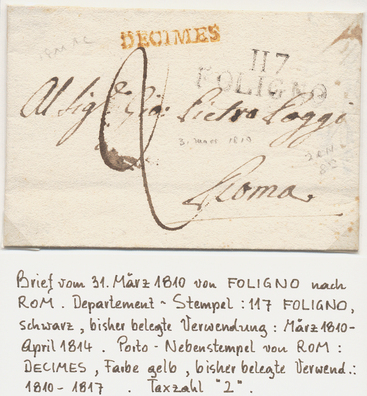 DECIMES
117
FOLIGNO
2
Al Sig.r Gio: Pietro Poggi
Roma
Brief vom 31. März 1810 von FOLIGNO nach
ROM. Departement - Stempel : 117 FOLIGNO,
schwarz, bisher belegte Verwendung : März 1810-
April 1814. Porto - Nebenstempel von ROM :
DECIMES, Farbe gelb, bisher belegte Verwend.:
1810 - 1817 . Taxzahl "2".